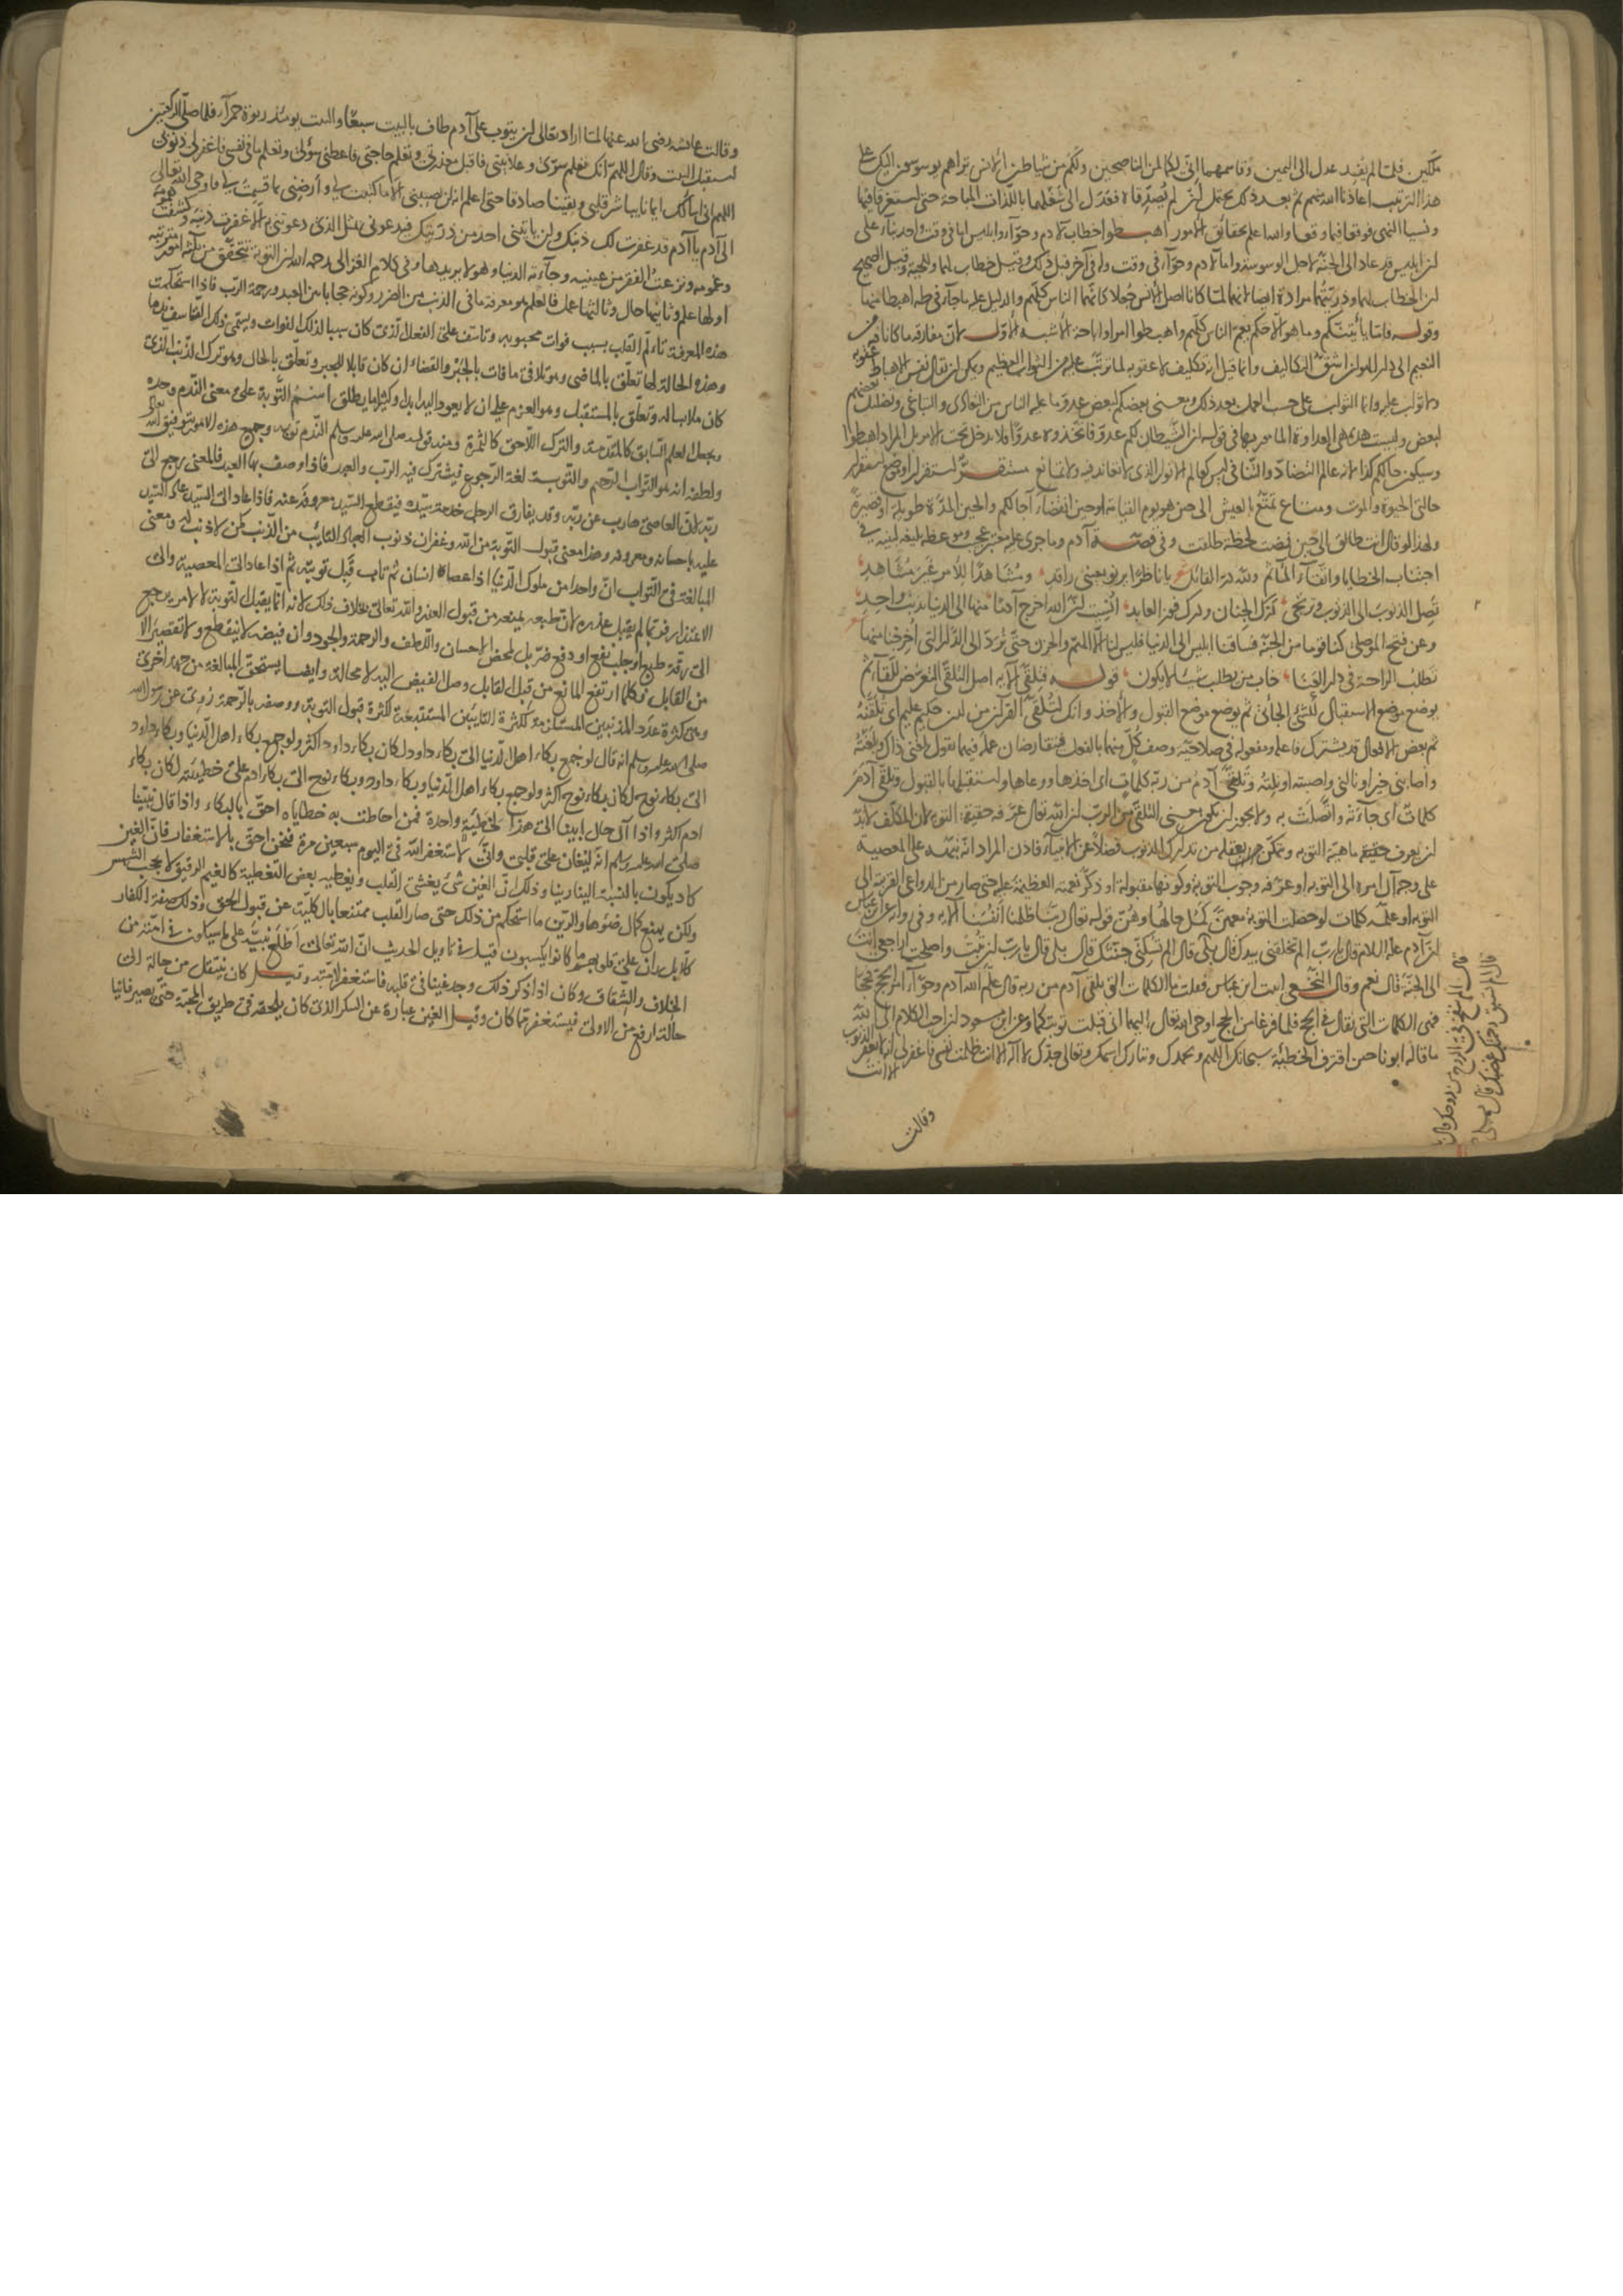 ملكين فلما لم يفد عدل الى اليمين وقاسمهما انى لكما لمن الناصحين وكم من شياطين الانس تراهم يوسوسون اليك على
هذا الترتيب اعاذنا الله منهم ثم بعد ذلك يحتمل ان لم يصدقاه فعدل الى شغلهما باللذات المباحة حتى استغرقا فيها
ونسيا النهى فوقعا فيما وقعا والله اعلم بحقائق الامور اهبطوا خطاب لآدم وحواء وابليس اما فى وقت واحد بناء على
ان ابليس قد عاد الى الجنة لاجل الوسوسة واما لآدم وحواء فى وقت وله فى آخر قبل ذلك وقيل خطاب لهما وللحية وقيل الصحيح
ان الخطاب لهما وذريتهما مرادة ايضا لانهما لما كانا اصل الانس جعلا كانهما الناس كلهم والدليل عليه ما جاء فى طه اهبطا منها
وقوله فاما يأتينكم وما هو الا حكم يعم الناس كلهم واهبطوا امر او اباحة الاشبه الاول لان مفارقة ما كانا فيه من
النعيم الى دار الهوان اشق التكاليف وانما قيل انه تكليف لا عقوبة لما ترتب عليه من الثواب العظيم ويمكن ان يقال نفس الاهباط عقوبة
وما ثواب عليه وانما الثواب على حسب العمل بعد ذلك ومعنى بعضكم لبعض عدو ما عليه الناس من التعادى والتباغى وتضليل بعضهم
لبعض وليست هذه هى العداوة المأمور بها فى قوله ان الشيطان لكم عدو فاتخذوه عدوا فلا يدخل تحت الامر بل المراد اهبطوا
وسيكون حالكم كذا لانه عالم التضاد والتنافى ليس كعالم الانوار الذى لا تعاند فيه ولا تمانع مستقر استقرار او موضع استقرار
حالتى الحيوة والموت ومتاع تمتع بالعيش الى حين هو يوم القيامة او حين انقضاء آجالكم والحين المدة طويلة او قصيرة
ولهذا لو قال انت طالق الى حين فمضت لحظة طلقت وفى قصة آدم وما جرى عليه معتبر عجيب وموعظة بليغة لبنيه فى
اجتناب الخطايا واتقاء المآثم ولله در القائل شعر يا ناظرا يرنو بعينى راقد ومشاهدا للامر غير مشاهد
تصل الذنوب الى الذنوب وترتجى درك الجنان ودرك فوز العابد انسيت ان الله اخرج آدما منها الى الدنيا بذنب واحد
وعن فتح الموصلى كنا قوما من الجنة فسبانا ابليس الى الدنيا فليس لنا الا الهم والحزن حتى نرد الى الدار التى اخرجنا منها شعر
نطلب الراحة فى دار الفنا خاب من يطلب شيئا لا يكون قوله فتلقى الآية اصل التلقى التعرض للقاء ثم
يوضع موضع الاستقبال للشئ الجائى ثم يوضع موضع القبول والاخذ وانك لتلقى القرآن من لدن حكيم عليم اى تلقنه
ثم بعض الافعال قد يشترك فاعله ومفعوله فى صلاحية وصف كل منهما بالفعل فيتقارضان عمله فيهما تقول بلغنى ذاك وبلغته
واصابنى خير او نالنى واصبته او نلته وتلقى آدم من ربه كلمات اى اخذها ووعاها واستقبلها بالقبول وتلقى آدم
كلمات اى جاءته واتصلت به ولا يجوز ان يكون معنى التلقى من الرب ان الله تعالى عرفه حقيقة التوبة لان المكلف لا بد
ان يعرف حقيقة ماهية التوبة ويتمكن بفعلها من تدارك الذنوب فضلا عن الانبياء فاذن المراد انه نبهه على المعصية
على وجه آل امره الى التوبة او عرفه وجوب التوبة وكونها مقبولة او ذكره نعمته العظيمة عليه حتى صار من الدواعى القوية الى
التوبة او علمه كلمات لو حصلت التوبة معهن كمل حالها وهن قوله تعالى ربنا ظلمنا انفسنا الآية وفى رواية عن ابن عباس
ان آدم عليه السلام قال يا رب الم تخلقنى بيدك قال بلى قال الم تسكنى جنتك قال بلى قال يا رب ان تبت واصلحت اراجعى انت
الى الجنة قال نعم وقال النخعى اتيت ابن عباس فقلت ما الكلمات التى تلقى آدم من ربه قال علم الله آدم وحواء امر الحج فحجا
فهى الكلمات التى تقال فى الحج فلما فرغا من الحج اوحى الله تعالى اليهما انى قبلت توبتكما وعن ابن مسعود ان احب الكلام الى الله
ما قاله ابونا حين اقترف الخطيئة سبحانك اللهم وبحمدك وتبارك اسمك وتعالى جدك لا اله الا انت ظلمت نفسى فاغفر لى انه لا يغفر الذنوب
الا انت
قال الم تنفخ فى الروح من روحك قال
قال الم تسبق رحمتك غضبك قال بلى
وقالت
وقالت عائشة رضى الله عنها لما اراد تعالى ان يتوب على آدم طاف بالبيت سبعا والبيت يومئذ ربوة حمراء فلما صلى الركعتين
استقبل البيت وقال اللهم انك تعلم سرى وعلانيتى فاقبل معذرتى وتعلم حاجتى فاعطنى سؤلى وتعلم ما فى نفسى فاغفر لى ذنوبى
اللهم انى اسألك ايمانا يباشر قلبى ويقينا صادقا حتى اعلم انه لن يصيبنى الا ما كتبت لى وارضنى بما قسمت لى فاوحى الله تعالى
الى آدم يا آدم قد غفرت لك ذنبك ولن ياتينى احد من ذريتك فيدعونى بمثل الذى دعوتنى به الا غفرت ذنبه وكشفت همومه
وغمومه ونزعت الفقر من عينيه وجاءته الدنيا وهو لا يريدها وفى كلام الغزالى رحمه الله ان التوبة تتحقق من ثلثة امور مترتبة
اولها علم وثانيها حال وثالثها عمل فالعلم هو معرفة ما فى الذنب من الضرر وكونه حجابا بين العبد ورحمة الرب فاذا استحكمت
هذه المعرفة تألم القلب بسبب فوات محبوبه وتأسف على الفعل الذى كان سببا لذلك الفوات ويسمى ذلك التأسف ندما
وهذه الحالة لها تعلق بالماضى وهو تلافى ما فات بالجبر والقضاء ان كان قابلا للجبر وتعلق بالحال وهو ترك الذنب الذى
كان ملابسا له وتعلق بالمستقبل وهو العزم على ان لا يعود اليه ابدا وكثيرا ما يطلق اسم التوبة على معنى الندم وحده
ويجعل العلم السابق كالمقدمة والترك اللاحق كالثمرة ومنه قوله صلى الله عليه وسلم الندم توبة وجميع هذه الامور بتوفيق الله تعالى
ولطفه انه هو التواب الرحيم والتوبة لغة الرجوع فيشترك فيه الرب والعبد فاذا وصف بها العبد فالمعنى رجع الى
ربه لان العاصى هارب عن ربه وقد يفارق الرجل خدمة سيده فيقطع السيد معروفه عنه فاذا عاد الى السيد عاد السيد
عليه باحسانه ومعروفه وهذا معنى قبول التوبة من الله وغفران ذنوب العباد التائب من الذنب كمن لا ذنب له ومعنى
المبالغة فى التواب ان واحدا من ملوك الدنيا اذا عصاه انسان ثم تاب قبل توبته ثم اذا عاد الى المعصية والى
الاعتذار فربما لم يقبل عذره لان طبعه يمنعه من قبول العذر والله تعالى بخلاف ذلك لانه انما يقبل التوبة لا لامر يرجع
الى رقة طبع او جلب نفع او دفع ضر بل لمحض الاحسان واللطف والرحمة والجود وان فيضه لا ينقطع ولا تقصير الا
من القابل فكلما ارتفع المانع من قبل القابل وصل الفيض اليه لا محالة وايضا يستحق المبالغة من جهة اخرى
وهى كثرة عدد المذنبين المستلزمة لكثرة التائبين المستتبعة لكثرة قبول التوبة ووصفه بالرحمة روى عن رسول الله
صلى الله عليه وسلم انه قال لو جمع بكاء اهل الدنيا الى بكاء داود لكان بكاء داود اكثر ولو جمع بكاء اهل الدنيا وبكاء داود
الى بكاء نوح لكان بكاء نوح اكثر ولو جمع بكاء اهل الدنيا وبكاء داود وبكاء نوح الى بكاء ادم على خطيئته لكان بكاء
ادم اكثر واذا آل حال ابينا الى هذا لخطيئة واحدة فمن احاطت به خطاياه احق بالبكاء واذا قال نبينا
صلى الله عليه وسلم انه ليغان على قلبى وانى لاستغفر الله فى اليوم سبعين مرة فنحن احق بالاستغفار فان الغين
كاد يكون بالنسبة الينا رينا وذلك ان الغين شئ يغشى القلب ويغطيه بعض التغطية كالغيم الرقيق لا يحجب الشمس
ولكن يمنع كمال ضوءها والرين ما استحكم من ذلك حتى صار القلب ممتنعا بالكلية عن قبول الحق وذلك صفة الكفار
كلا بل ران على قلوبهم ما كانوا يكسبون قيل فى تاويل الحديث ان الله تعالى اطلع نبيه على ما سيكون فى امته من
الخلاف والشقاق وكان اذا ذكر ذلك وجد غينا فى قلبه فاستغفر لامته وقيل كان ينتقل من حالة الى
حالة ارفع من الاولى فيستغفر مما كان وقيل الغين عبارة عن السكر الذى كان يلحقه فى طريق المحبة حتى يصير فانيا